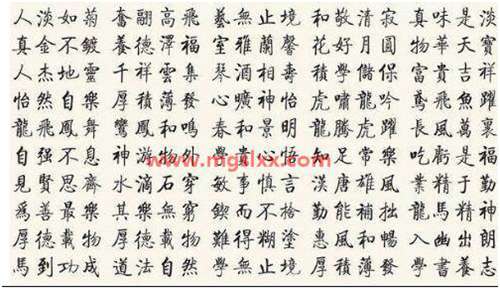 人淡如菊 奮翮高飛 藝無止境 和敬清寂 真味是淡
真金不鍍 養德澤福 室雅蘭馨 花好月圓 物華天寶
人杰地靈 千祥雲集 琴 相壽 積學儲 富貴吉祥
怡然自樂 厚積薄發 曠神怡 虎嘯龍吟 鳶飛魚躍
龍飛鳳舞 鸞鳳和鳴 春和景明 龍騰虎躍 長風萬裏
自强不息 神游物外 學貴心悟 知足常樂 吃虧是福
www.mgslxx.com
見賢思齊 水滴石穿 敏事慎言 漢唐雄風 業精于勤
為善最樂 其樂無窮 鍥而不捨 勤能補拙 龍馬精神
厚德載物 厚德載物 難得糊塗 惠風和暢 入幽出朗
馬到功成 道法自然 學無止境 厚積薄發 學書養志